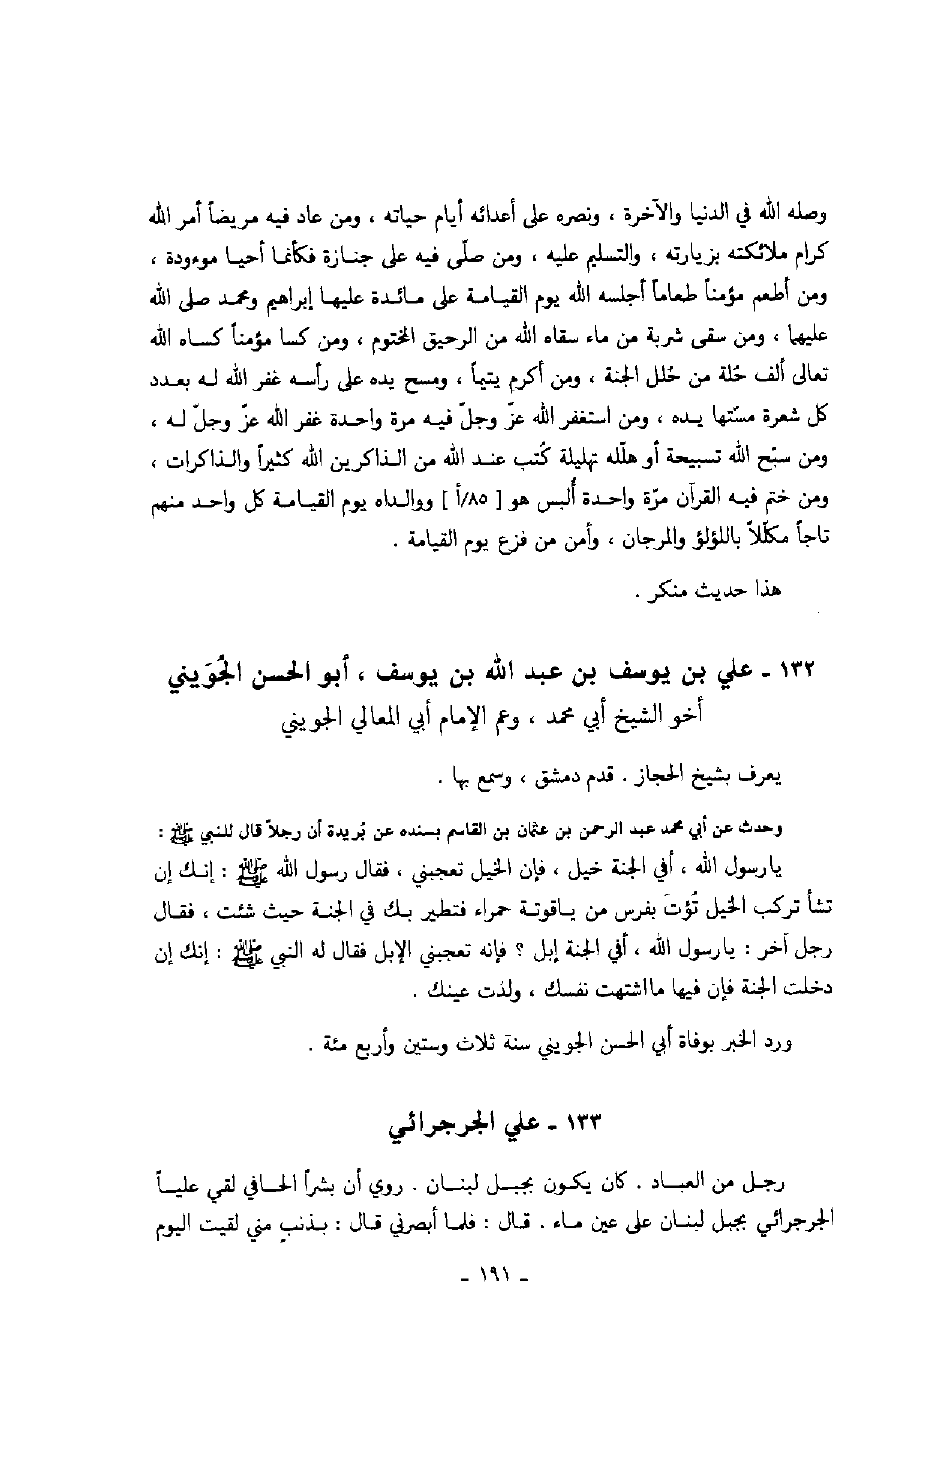 وصله الله في الدنيا والآخرة ، ونصره على أعدائه أيام حياته ، ومن عاد فيه مريضاً أمر الله
كرام ملائكته بزيارته ، والتسليم عليه ، ومن صلّى فيه على جنازة فكأنما أحيا موءودة ،
ومن أطعم مؤمناً طعاماً أجلسه الله يوم القيامة على مائدة عليها إبراهيم ومحمد صلى الله
عليهما ، ومن سقى شربة من ماء سقاه الله من الرحيق المختوم ، ومن كسا مؤمناً كساه الله
تعالى ألف حُلة من حُلل الجنة ، ومن أكرم يتيماً ، ومسح يده على رأسه غفر الله له بعدد
كل شعرة مسّتها يده ، ومن استغفر الله عزّ وجلّ فيه مرة واحدة غفر الله عزّ وجلّ له ،
ومن سبّح الله تسبيحة أو هلّله تهليلة كُتب عند الله من الذاكرين الله كثيراً والذاكرات ،
ومن ختم فيه القرآن مرّة واحدة أُلبس هو [ ٨٥/أ ] ووالداه يوم القيامة كل واحد منهم
تاجاً مكلّلاً باللؤلؤ والمرجان ، وأمن من فزع يوم القيامة .
هذا حديث منكر .
١٣٢ - علي بن يوسف بن عبد الله بن يوسف ، أبو الحسن الجُوَيني
أخو الشيخ أبي محمد ، وعم الإمام أبي المعالي الجويني
يعرف بشيخ الحجاز . قدم دمشق ، وسمع بها .
وحدث عن أبي محمد عبد الرحمن بن عثمان بن القاسم بسنده عن بُريدة أن رجلاً قال للنبي ﷺ :
يارسول الله ، أفي الجنة خيل ، فإن الخيل تعجبني ، فقال رسول الله ﷺ : إنك إن
تشأ تركب الخيل تُؤتَ بفرس من ياقوتة حمراء فتطير بك في الجنة حيث شئت ، فقال
رجل آخر : يارسول الله ، أفي الجنة إبل ؟ فإنه تعجبني الإبل فقال له النبي ﷺ : إنك إن
دخلت الجنة فإن فيها مااشتهت نفسك ، ولذت عينك .
ورد الخبر بوفاة أبي الحسن الجويني سنة ثلاث وستين وأربع مئة .
١٣٣ - علي الجرجرائي
رجل من العباد . كان يكون بجبل لبنان . روي أن بشراً الحافي لقي علياً
الجرجرائي بجبل لبنان على عين ماء . قال : فلما أبصرني قال : بذنبٍ مني لقيت اليوم
- ١٩١ -